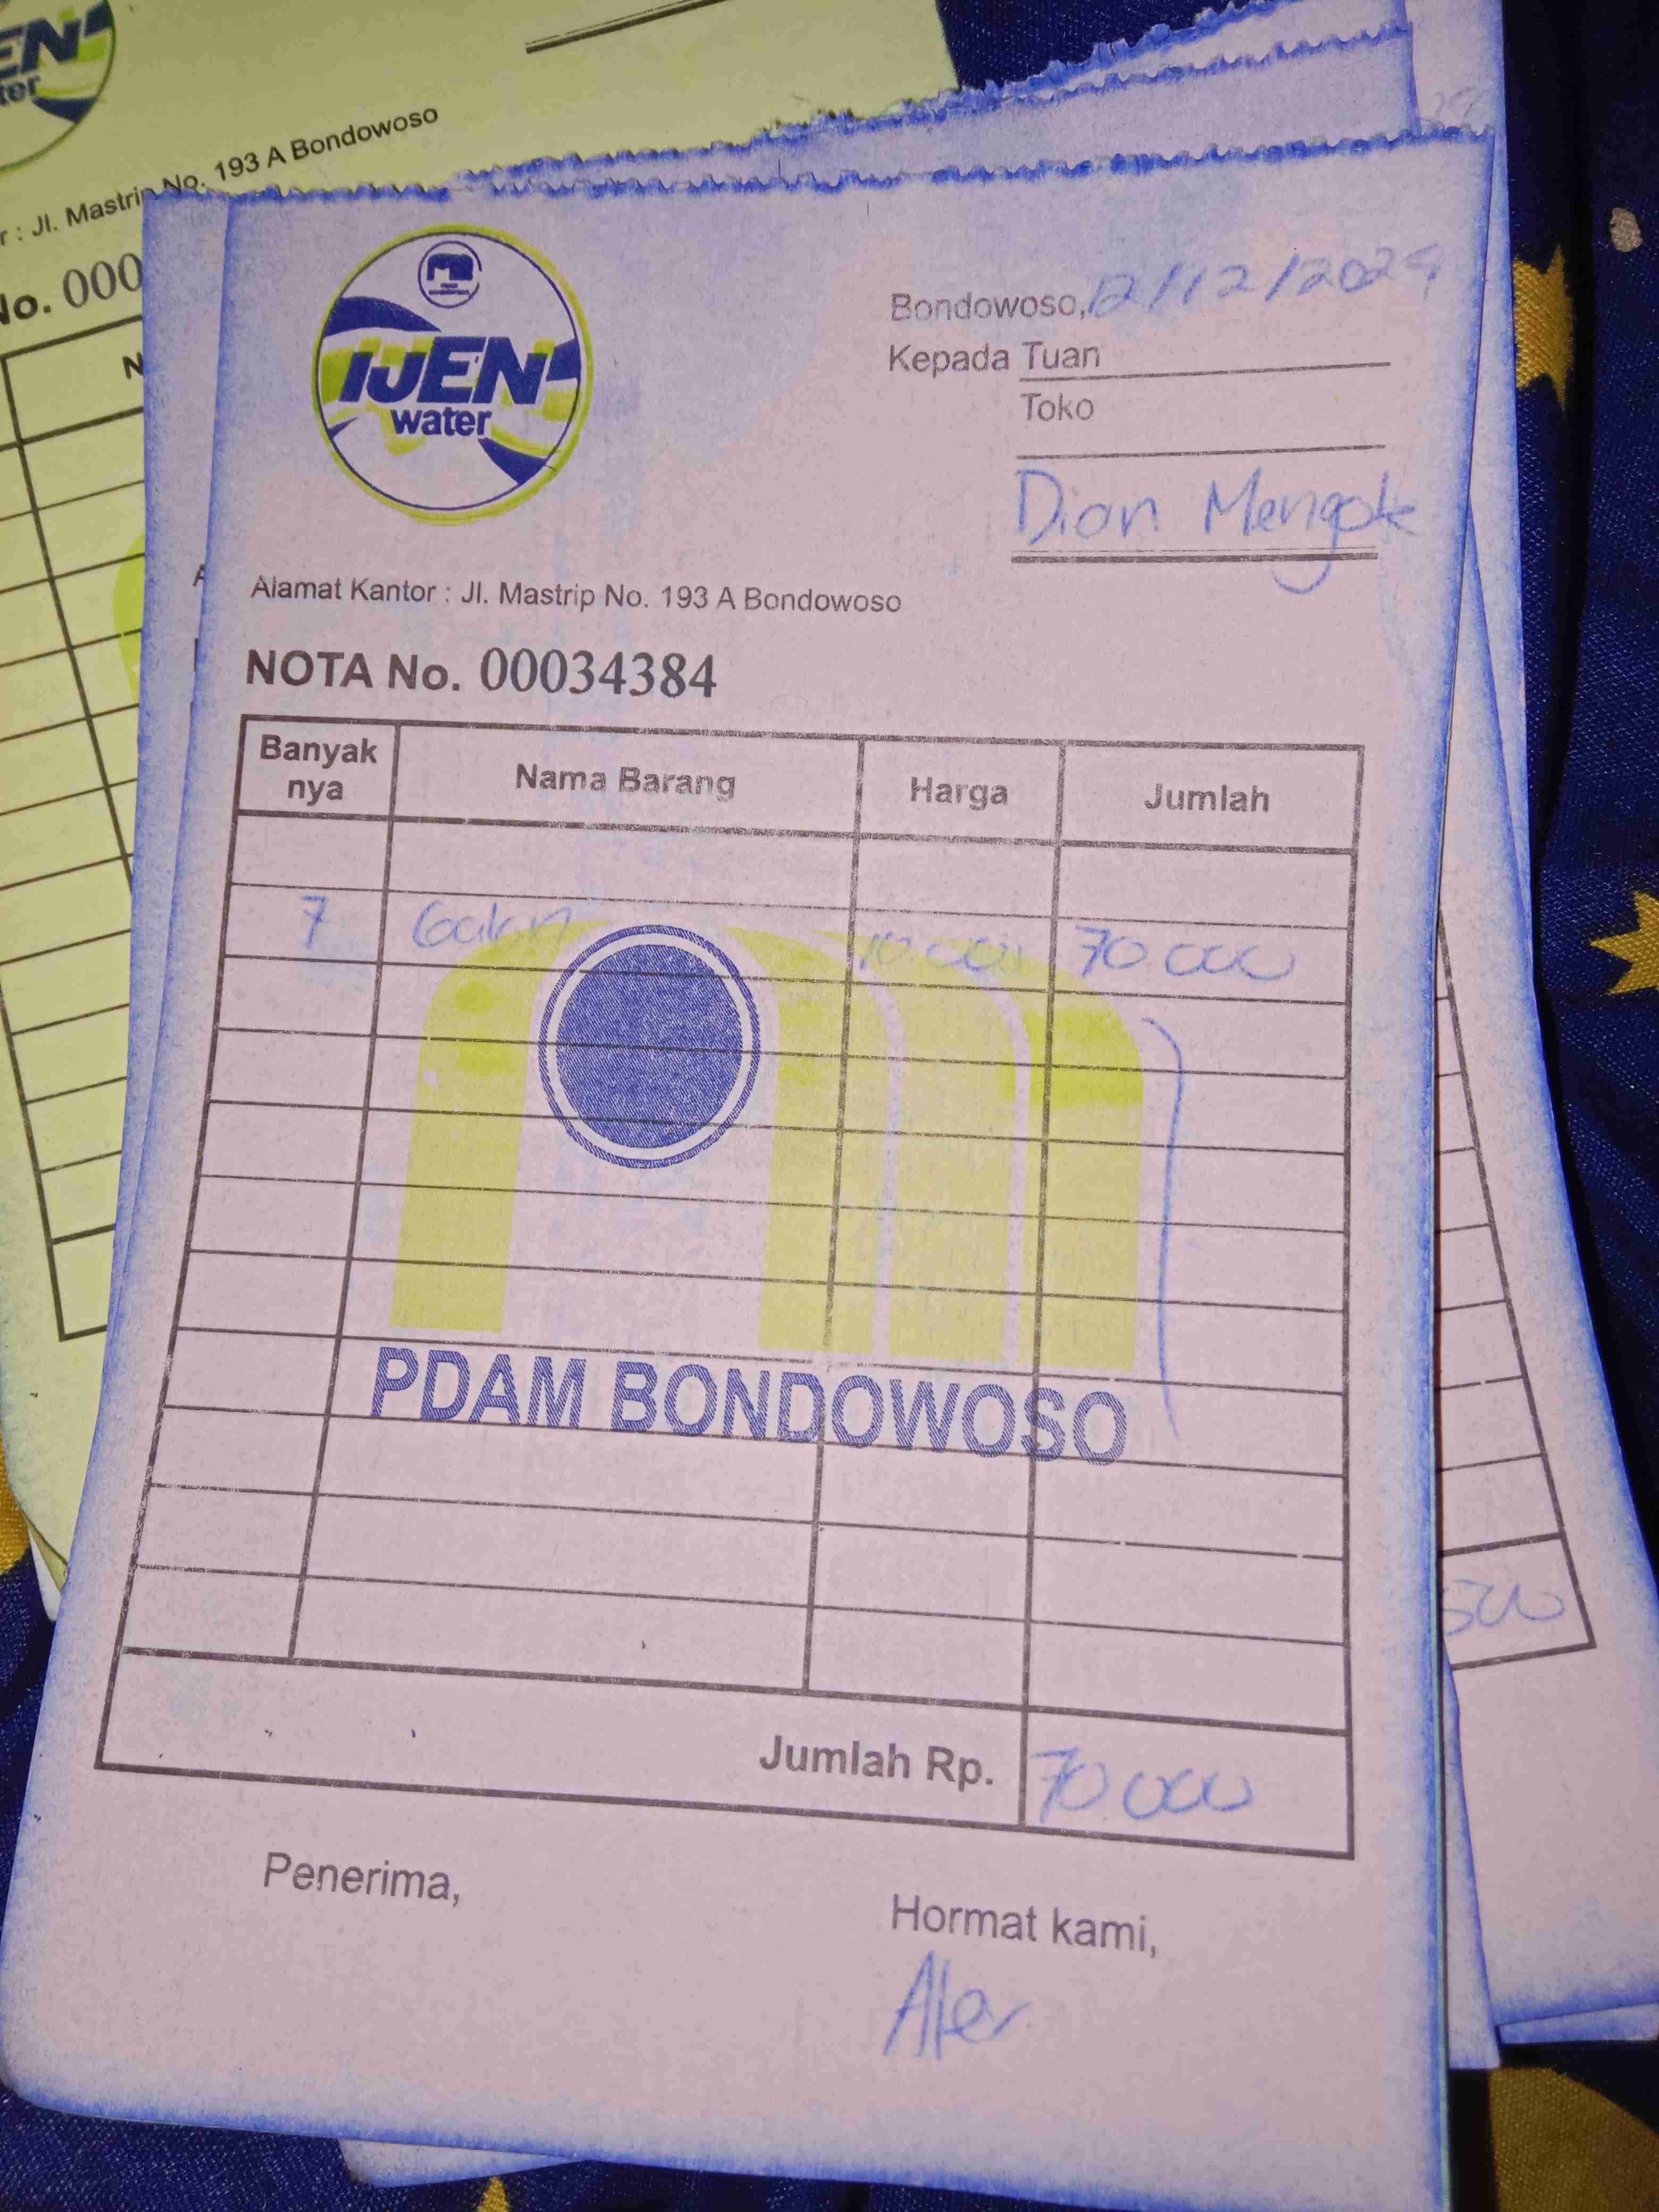 EN
ter
r : Jl. Mastrip No. 193 A Bondowoso
No. 000
N
IJEN
water
Bondowoso, 12/12/2024
Kepada Tuan
Toko
Dion
Alamat Kantor : Jl. Mastrip No. 193 A Bondowoso
NOTA No. 00034384
Banyak nya Nama Barang Harga Jumlah
7 Galon 10.000 70.000
PDAM BONDOWOSO
Jumlah Rp. 70.000
500
Penerima,
Hormat kami,